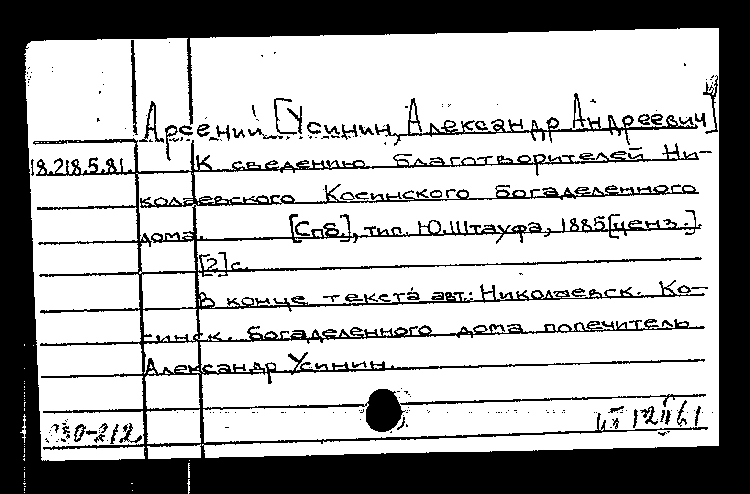 Арсений [Усинин, Александр Андреевич]
18.218.5.81. К сведению благотворителей Ни-
колаевского Косинского богаделенного
дома. [Спб.], тип. Ю.Штауфа, 1885[ценз.].
[2]с.
В конце текста авт.: Николаевск. Ко-
синск. богаделенного дома попечитель
Александр Усинин.